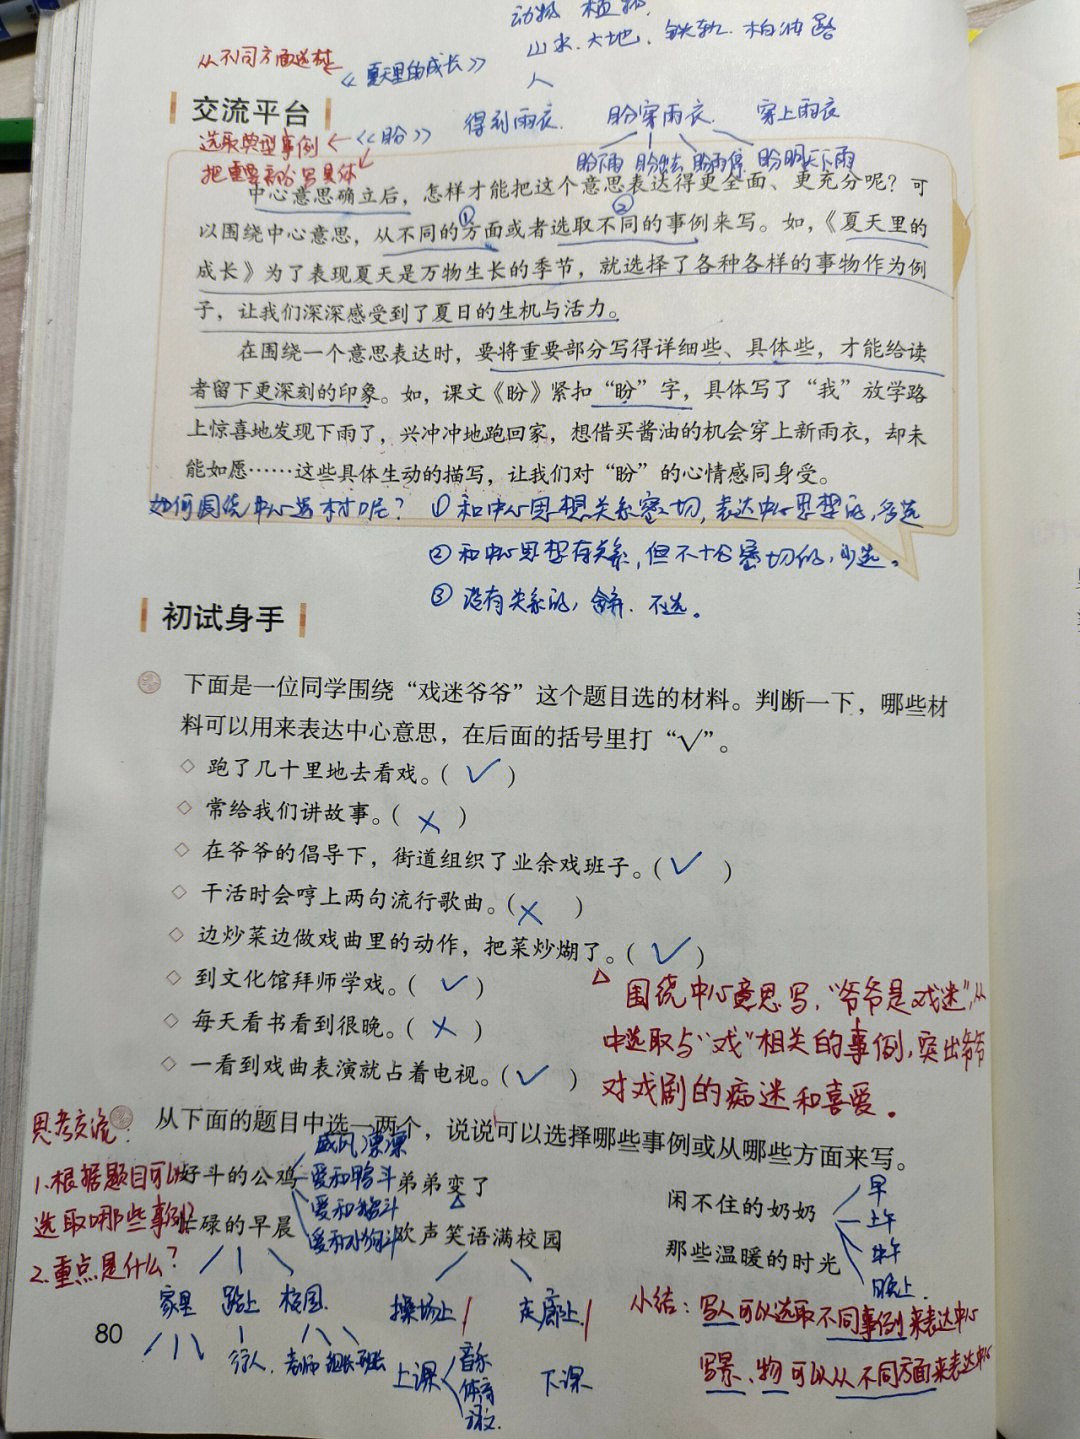 动物 植物
山水、大地、铁轨、柏油路
人
从不同方面选材
《夏天里的成长》
交流平台
得到雨衣 盼穿雨衣 穿上雨衣
选取典型事例 ← 《盼》
盼下雨 盼出去 盼雨停 盼明天下雨
把重要部分写具体
中心意思确立后，怎样才能把这个意思表达得更全面、更充分呢？可
① ②
以围绕中心意思，从不同的方面或者选取不同的事例来写。如，《夏天里的
成长》为了表现夏天是万物生长的季节，就选择了各种各样的事物作为例
子，让我们深深感受到了夏日的生机与活力。
在围绕一个意思表达时，要将重要部分写得详细些、具体些，才能给读
者留下更深刻的印象。如，课文《盼》紧扣“盼”字，具体写了“我”放学路
上惊喜地发现下雨了，兴冲冲地跑回家，想借买酱油的机会穿上新雨衣，却未
能如愿……这些具体生动的描写，让我们对“盼”的心情感同身受。
如何围绕中心选材呢？ ①和中心思想关系密切，表达中心思想的，多选
②和中心思想有关系，但不十分密切的，少选。
③没有关系的，舍弃，不选。
初试身手
下面是一位同学围绕“戏迷爷爷”这个题目选的材料。判断一下，哪些材
料可以用来表达中心意思，在后面的括号里打“√”。
◇ 跑了几十里地去看戏。（ √ ）
◇ 常给我们讲故事。（ × ）
◇ 在爷爷的倡导下，街道组织了业余戏班子。（ √ ）
◇ 干活时会哼上两句流行歌曲。（ × ）
◇ 边炒菜边做戏曲里的动作，把菜炒煳了。（ √ ）
◇ 到文化馆拜师学戏。（ √ ）
◇ 每天看书看到很晚。（ × ）
◇ 一看到戏曲表演就占着电视。（ √ ）
△ 围绕中心意思写，“爷爷是戏迷”，从
中选取与“戏”相关的事例，突出爷爷
对戏剧的痴迷和喜爱。
思考交流：
从下面的题目中选一两个，说说可以选择哪些事例或从哪些方面来写。
1.根据题目可以
选取哪些事例？
2.重点是什么？
好斗的公鸡 弟弟变了 闲不住的奶奶
威风凛凛
爱和鸭斗
爱和小狗斗
早
上午
晚上
忙碌的早晨 欢声笑语满校园 那些温暖的时光
家里 路上 校园 操场上 走廊上
行人 老师 组长 班长 上课 音乐 体育 语文 下课
小结：写人可以选取不同事例来表达中心
写景、物可以从不同方面来表达中心
80